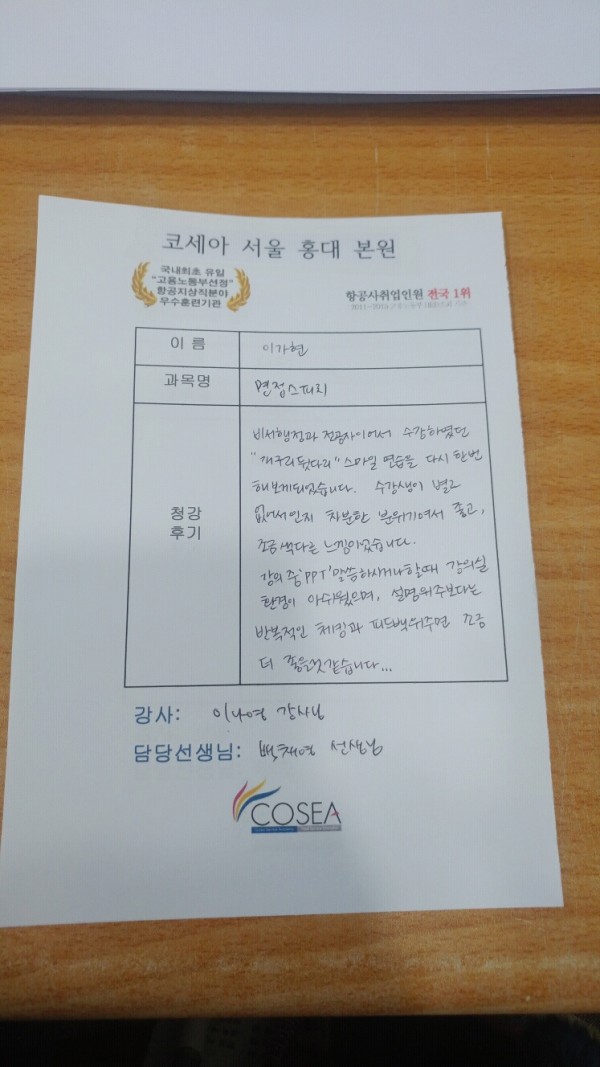 코세아 서울 홍대 본원
국내최초 유일
"고용노동부선정"
항공지상직분야
우수훈련기관
항공사취업인원 전국 1위
이 름
이가현
과목명
면접스피치
청강
후기
비서행정과 전공자이어서 수강하였던
"개구리뒷다리" 스마일 연습을 다시 한번
해보게되었습니다. 수강생이 별로
없어서인지 차분한 분위기여서 좋고,
조금 색다른 느낌이었습니다.
강의 중 'PPT' 말씀하시거나할때 강의실
환경이 아쉬웠으며, 설명위주보다는
반복적인 체킹과 피드백위주면 조금
더 좋을것같습니다...
강사: 이나영 강사님
담당선생님: 백채영 선생님
COSEA